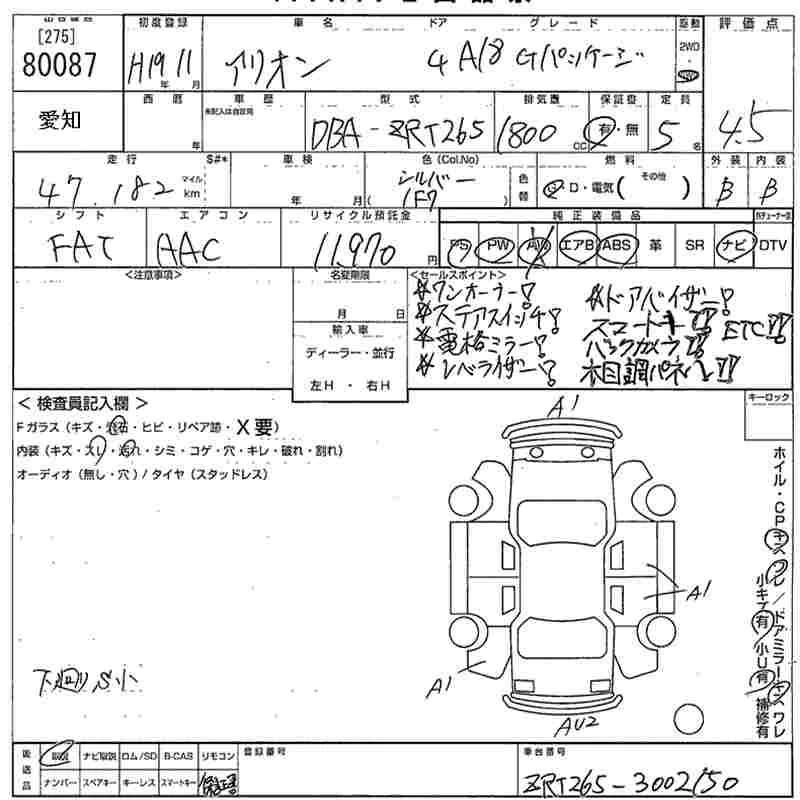 [275]
80087
初度登録
H19 11
年 月
車名
アリオン
ドア
グレード
4 A18 Gパッケージ
駆動
2WD
評価点
4.5
愛知
西暦
年
車歴
未記入は自家用
型式
DBA-ZRT265
排気量
1800
CC
保証書
有・無
定員
5
名
走行
47,182
マイル
km
S#*
車検
年 月
色(Col.No)
シルバー
(1F7 )
色替
燃料
G・D・電気( その他 )
外装
B
内装
B
シフト
FAT
エアコン
AAC
リサイクル預託金
11,970
円
純正装備品
PS PW AW エアB ABS 革 SR ナビ DTV
<注意事項>
名変期限
月 日
輸入車
ディーラー・並行
左H・右H
<セールスポイント>
*ワンオーナー!
*ステアスイッチ!
*電格ミラー!
*レベライザー!
*ドアバイザー!
スマートキー!! ETC!!
バックカメラ!!
木目調パネル!!
<検査員記入欄>
Fガラス(キズ・飛石・ヒビ・リペア跡・X要)
内装(キズ・スレ・汚れ・シミ・コゲ・穴・キレ・破れ・割れ)
オーディオ(無し・穴)/タイヤ(スタッドレス)
キーロック
A1
A1
A1
AU2
ホイル・CPキズ
ワレ/ドアミラーキズワレ
小キズ有 小U有 補修有
下廻りS小
後送品
取説 ナビ取説 ロム/SD B-CAS リモコン
ナンバー スペアキー キーレス スマートキー 保証書
登録番号
車台番号
ZRT265-3002150